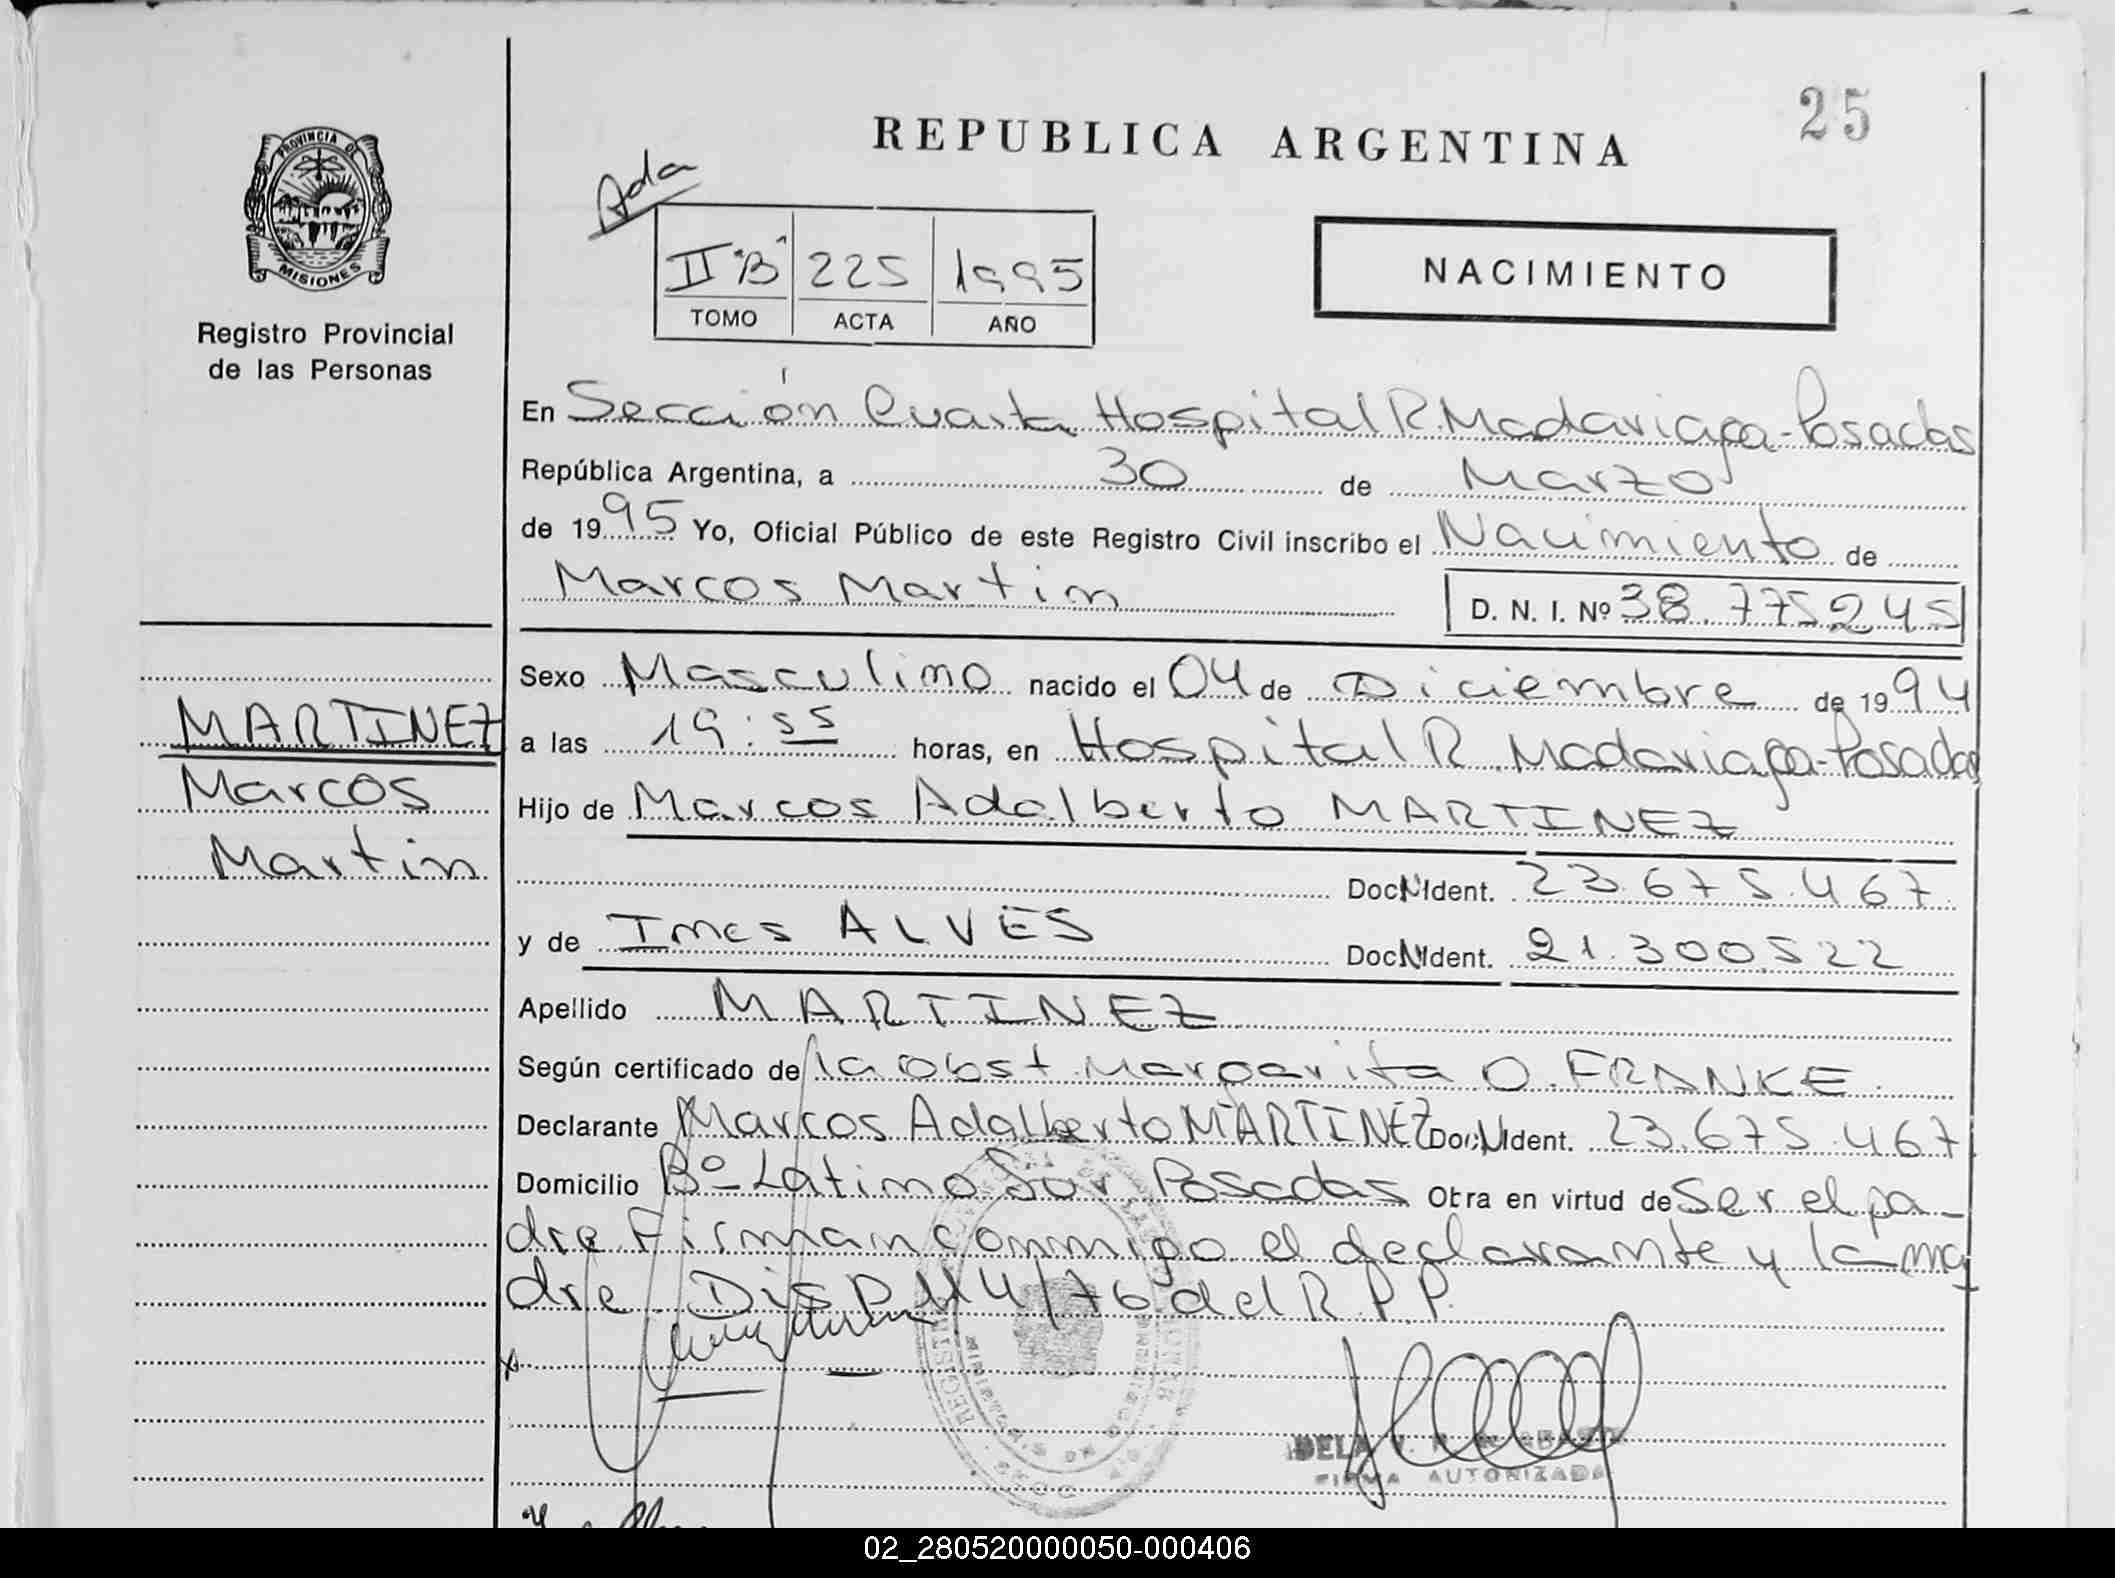 25
REPUBLICA ARGENTINA
PROVINCIA DE
MISIONES
Registro Provincial
de las Personas
Ada
II "B" 225 1995
TOMO ACTA AÑO
NACIMIENTO
En Sección Cuarta Hospital R. Madariaga-Posadas
República Argentina, a 30 de Marzo
de 1995 Yo, Oficial Público de este Registro Civil inscribo el Nacimiento de
Marcos Martin D. N. I. Nº 38.775245
Sexo Masculino nacido el 04 de Diciembre de 1994
MARTINEZ
Marcos
Martin
a las 19:55 horas, en Hospital R. Madariaga-Posadas
Hijo de Marcos Adalberto MARTINEZ
Doc. N. Ident. 23.675.467
y de Ines ALVES Doc. N. Ident. 21.300.522
Apellido MARTINEZ
Según certificado de la obst. Margarita O. FRANKE.
Declarante Marcos Adalberto MARTINEZ Doc. N. Ident. 23.675.467
Domicilio Bº Latino Sur Posadas Obra en virtud de Ser el pa-
dre Firman conmigo el declarante y la ma
dre Disp. Nº 4/76 del R.P.P.
FIRMA AUTORIZADA
02_280520000050-000406